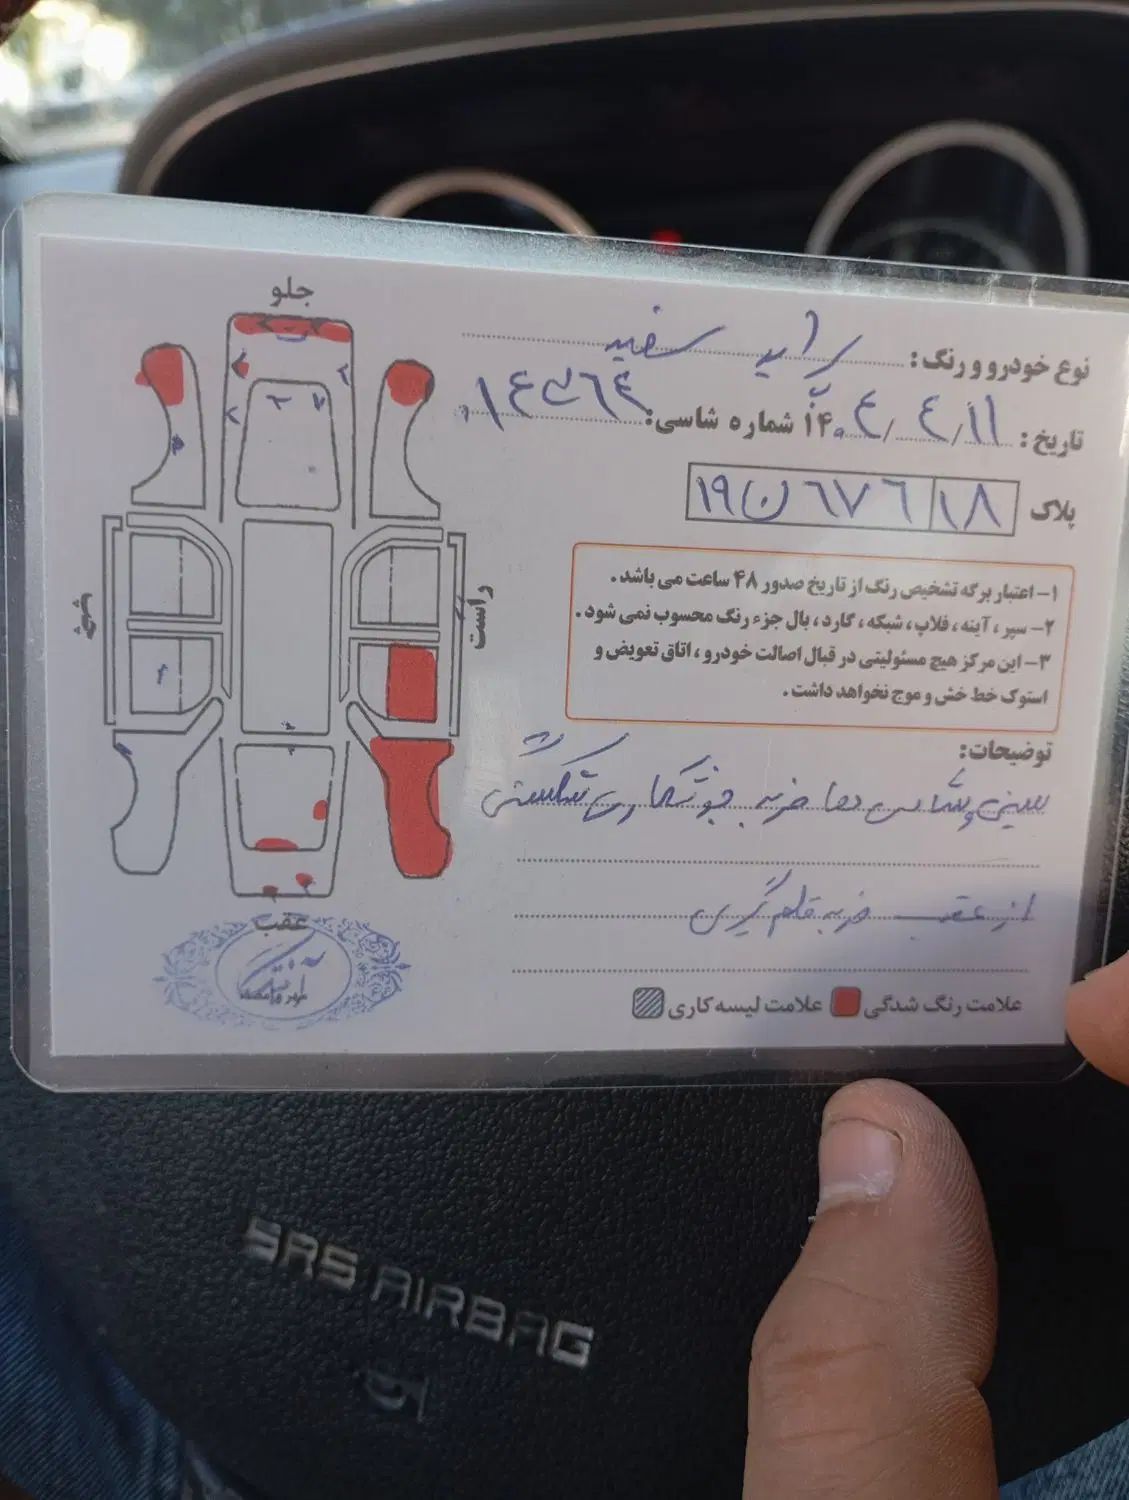 جلو
نوع خودرو و رنگ: پراید سفید
تاریخ: ۱۴۰۴/۴/۱۱ شماره شاسی:
پلاک ۱۸ ۶۷۶ ن ۱۹
۱- اعتبار برگه تشخیص رنگ از تاریخ صدور ۴۸ ساعت می باشد.
۲- سپر، آینه، فلاپ، شبکه، گارد، بال جزء رنگ محسوب نمی شود.
۳- این مرکز هیچ مسئولیتی در قبال اصالت خودرو، اتاق تعویض و
استوک خط خش و موج نخواهد داشت.
راست
چپ
توضیحات:
سینی و شاسی ها ضربه جوشکاری شکستگی
از عقب ضربه قلم گیری
عقب
مهر و امضاء
علامت رنگ شدگی علامت لیسه کاری
SRS AIRBAG